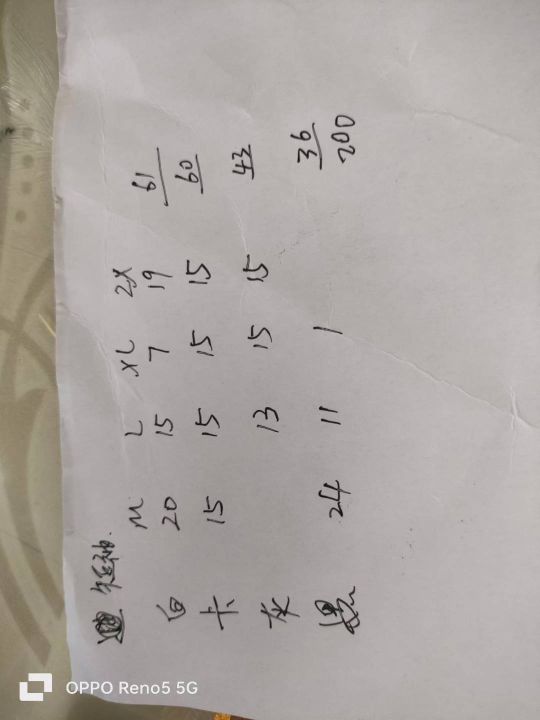 短袖
M L XL 2X
白 20 15 7 19 61
卡 15 15 15 15 60
灰 13 15 15 43
黑 24 11 1 36
200
OPPO Reno5 5G